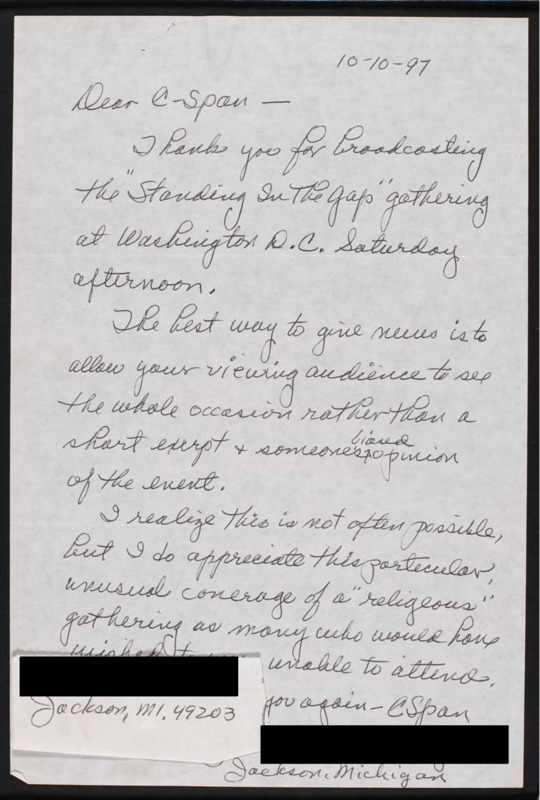 10-10-97
Dear C-Span —
Thank you for broadcasting
the "Standing In The Gap" gathering
at Washington D.C. Saturday
afternoon.
The best way to give news is to
allow your viewing audience to see
the whole occasion rather than a
short exerpt & someones biased opinion
of the event.
I realize this is not often possible,
but I do appreciate this particular,
unusual coverage of a "religious"
gathering as many who would have
wished to unable to attend.
Jackson, MI. 49203
you again - CSpan
Jackson, Michigan